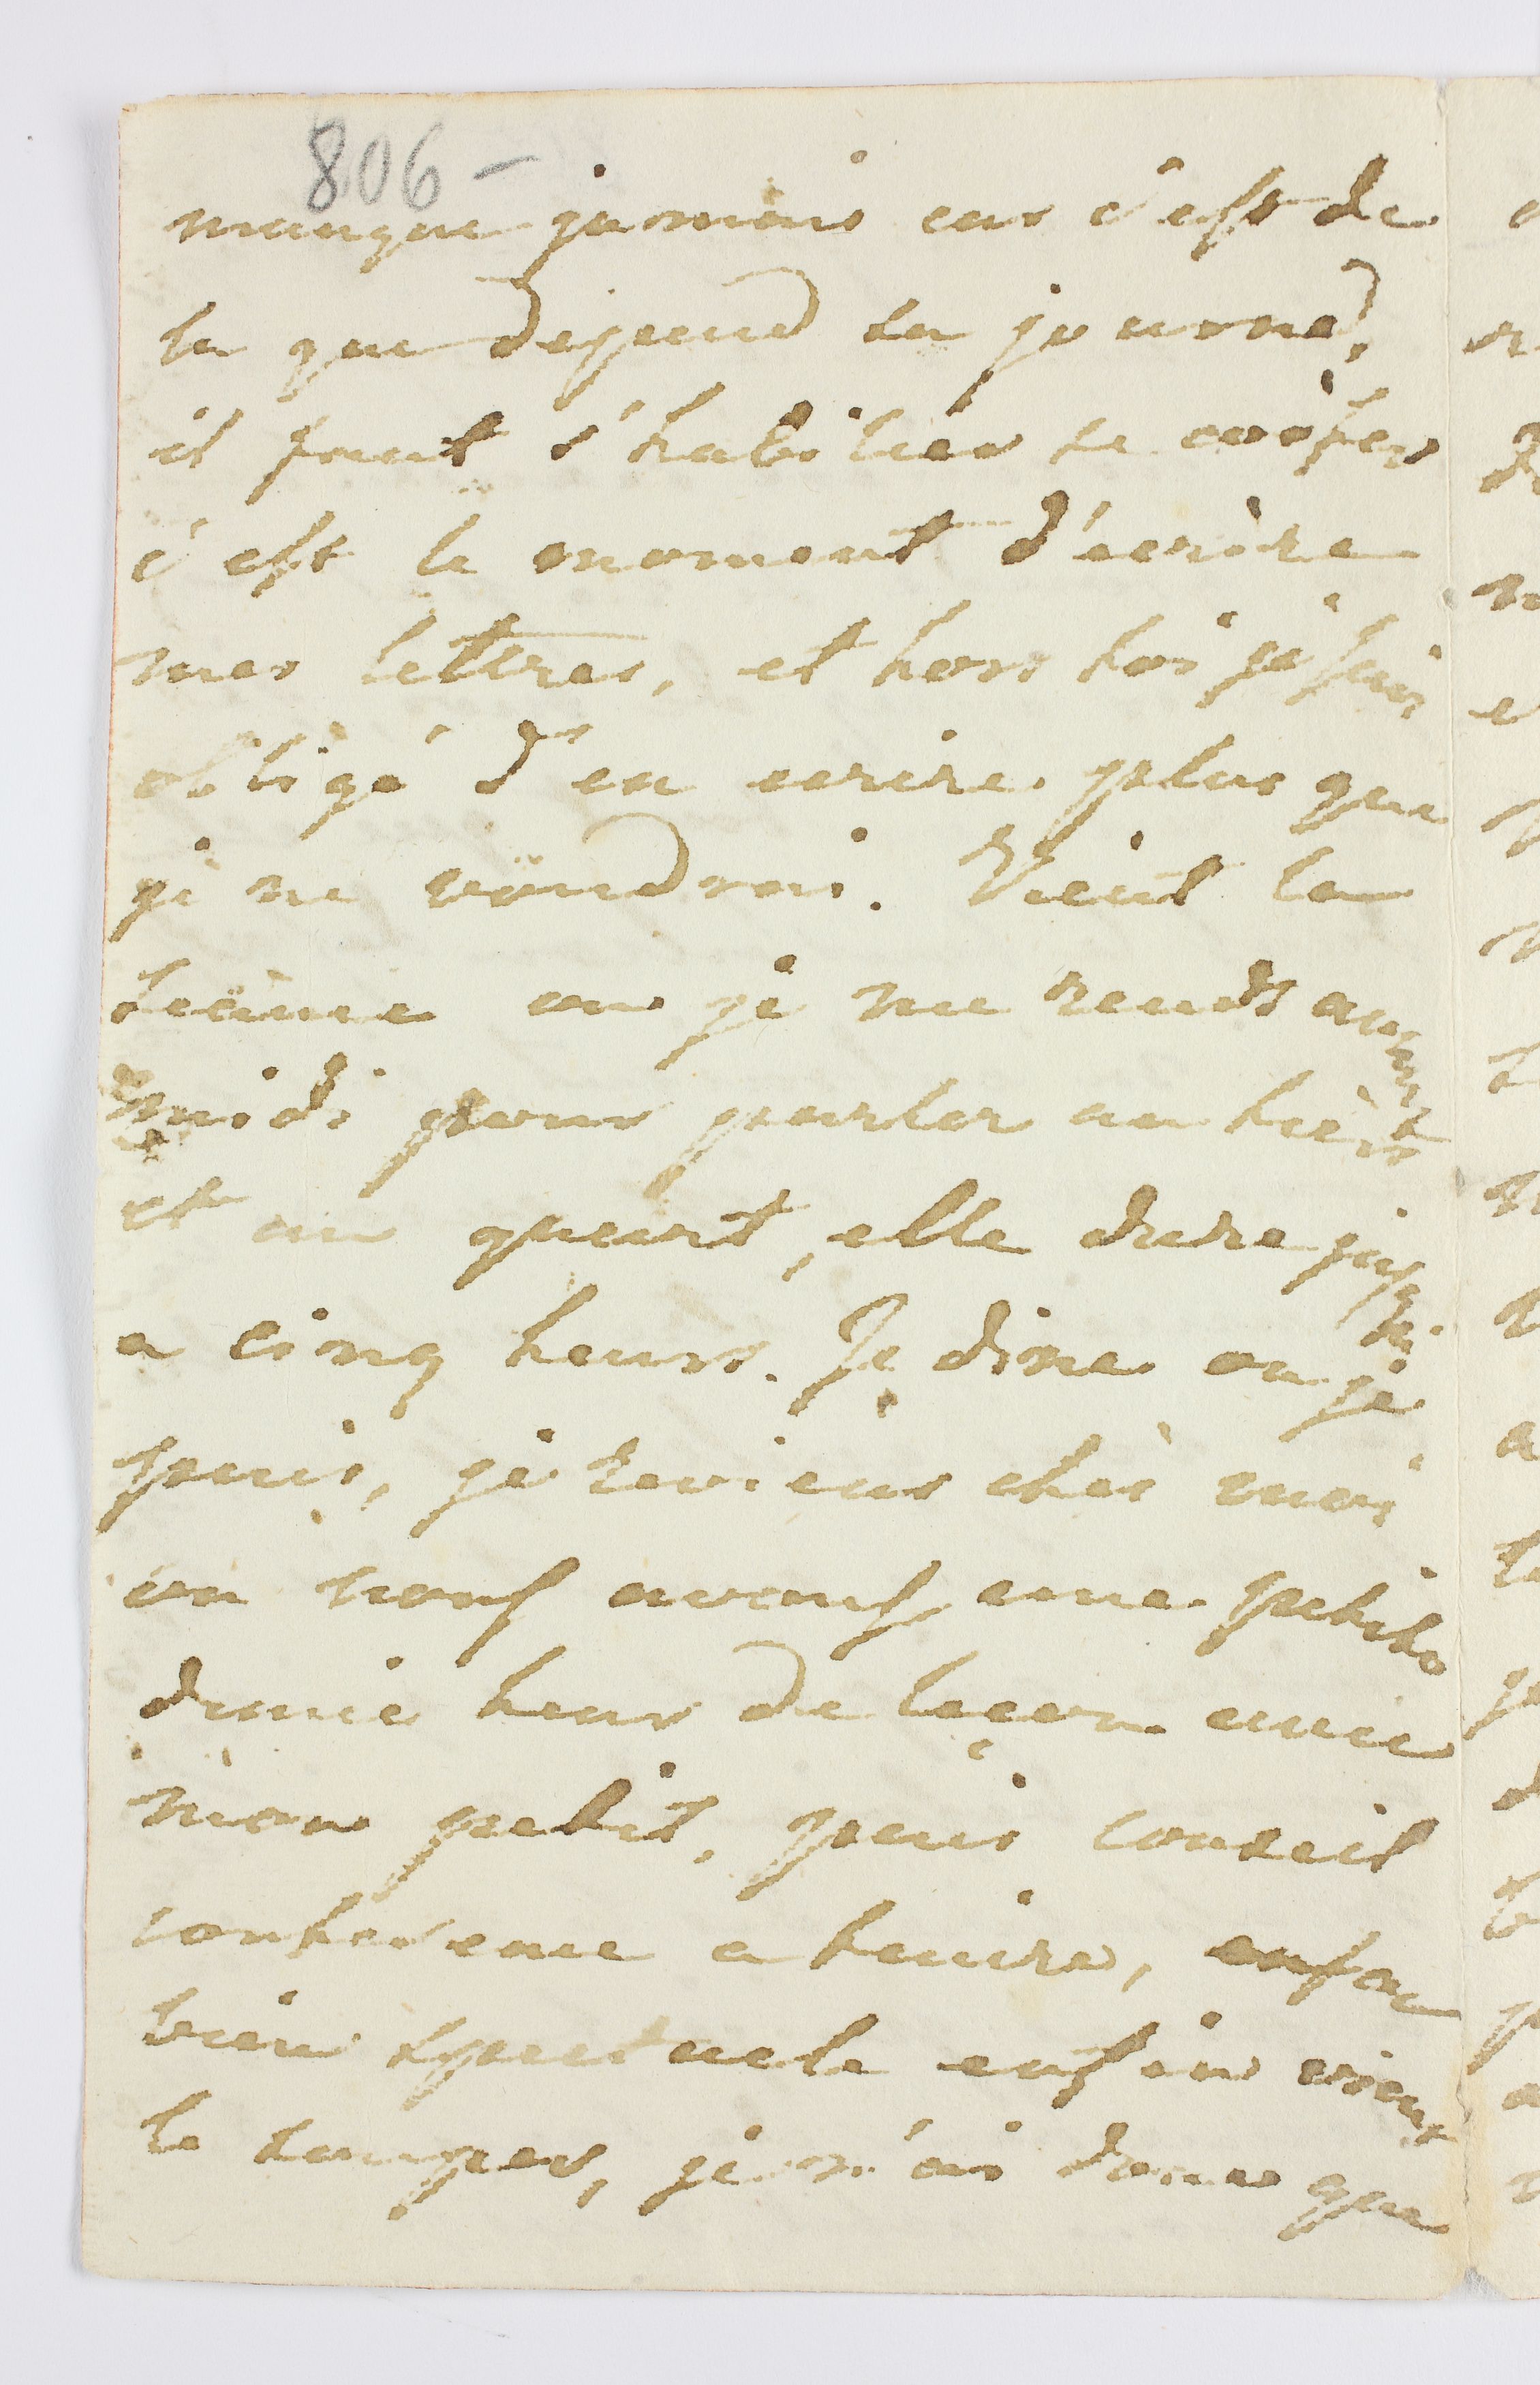 806 -
manque jamais car c'est de
la que depend la journé,
il faut s'habiller se coëfer
c'est le moment d'ecrire
mes lettres, et hors toi je suis
obligé d'en ecrire plus que
je ne voudrai. Vient la
seance ou je me rends avant
midi pour parler au tiers
et au quart, elle dure jusqu'
a cinq heurs. Je dine ou je
puis, je reviens chés moi
ou nous avons une petite
demie heur de leçon avec
mon petit, puis conseil
conference a tenire,
bien spectacle enfin vient
le souper, je n'ai donc que